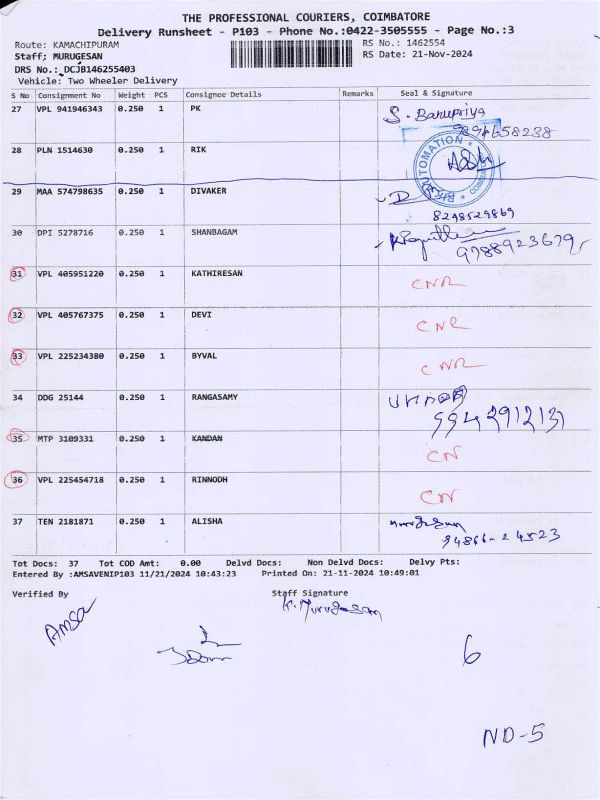 THE PROFESSIONAL COURIERS, COIMBATORE
Delivery Runsheet - P103 - Phone No.:0422-3505555 - Page No.:3
Route: KAMACHIPURAM RS No.: 1462554
Staff: MURUGESAN RS Date: 21-Nov-2024
DRS No.: DCJB146255403
Vehicle: Two Wheeler Delivery
S No Consignment No Weight PCS Consignee Details Remarks Seal & Signature
27 VPL 941946343 0.250 1 PK S. Banupriya
9894658238
28 PLN 1514630 0.250 1 RIK
AUTOMATION
29 MAA 574798635 0.250 1 DIVAKER
8248529869
30 DPI 5278716 0.250 1 SHANBAGAM
9788923679
31 VPL 405951220 0.250 1 KATHIRESAN CNR
32 VPL 405767375 0.250 1 DEVI CNR
33 VPL 225234380 0.250 1 BYVAL CNR
34 DDG 25144 0.250 1 RANGASAMY
9942912131
35 MTP 3109331 0.250 1 KANDAN CN
36 VPL 225454718 0.250 1 RINNODH CN
37 TEN 2181871 0.250 1 ALISHA Murugesan
94866-24523
Tot Docs: 37 Tot COD Amt: 0.00 Delvd Docs: Non Delvd Docs: Delvy Pts:
Entered By :AMSAVENIP103 11/21/2024 10:43:23 Printed On: 21-11-2024 10:49:01
Verified By Staff Signature
Amsa K. Murugesan
6
ND-5